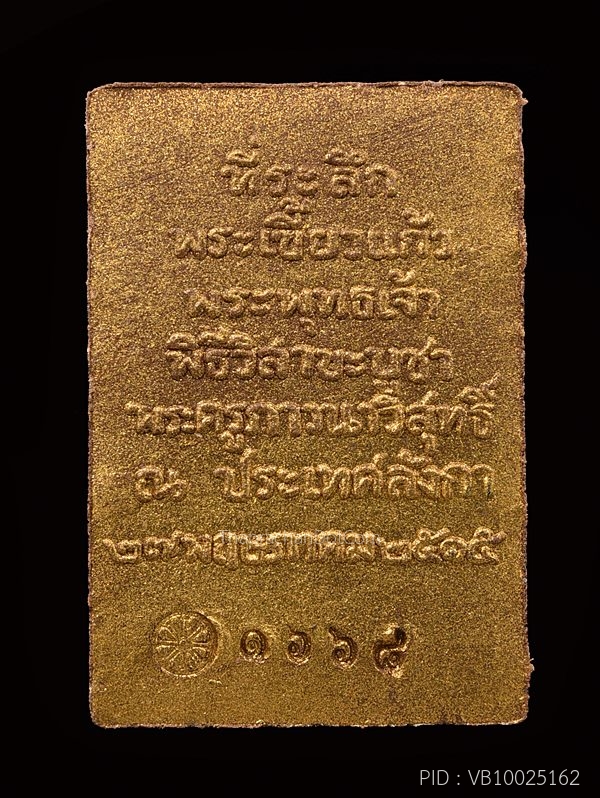 ที่ระลึก
พระเขี้ยวแก้ว
พระพุทธเจ้า
พิธีวิสาขะบูชา
พระครูภาวนาวิสุทธิ์
ณ ประเทศลังกา
๒๗ พฤษภาคม ๒๕๑๕
๑๖๖๘
PID : VB10025162